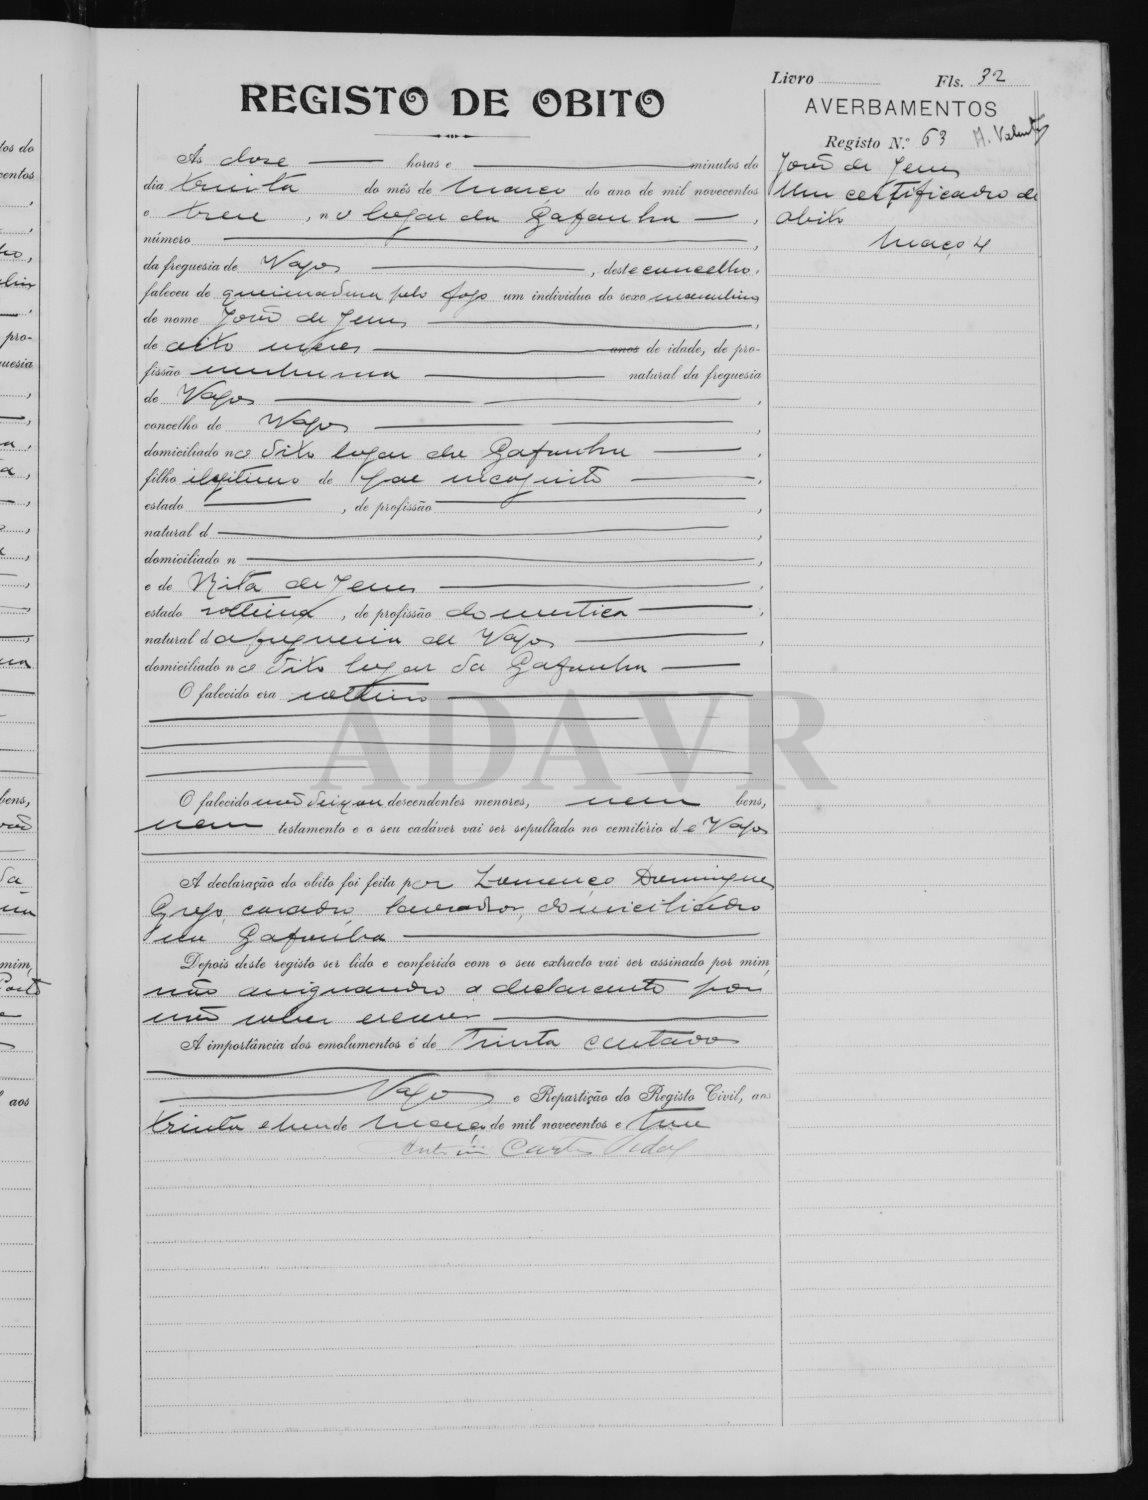 Livro Fls. 32
REGISTO DE OBITO
AVERBAMENTOS
Registo N.º 63 A. Valente
João de Jesus
Um certificado de
obito
Março 4
As doze horas e minutos do
dia trinta do mês de Março do ano de mil novecentos
e treze, no lugar da Gafanha,
número
da freguesia de Vagos, deste concelho,
faleceu de queimadura pelo fogo um individuo do sexo masculino
de nome João de Jesus,
de oito meses anos de idade, de pro-
fissão nenhuma natural da freguesia
de Vagos,
concelho de Vagos,
domiciliado no dito lugar da Gafanha,
filho ilegitimo de Pae incognito,
estado, de profissão,
natural d,
domiciliado n,
e de Rita de Jesus,
estado solteira, de profissão domestica,
natural da freguesia de Vagos,
domiciliado no dito lugar da Gafanha
O falecido era solteiro
ADAVR
O falecido não deixou descendentes menores, nem bens,
nem testamento e o seu cadáver vai ser sepultado no cemitério de Vagos
A declaração do obito foi feita por Lourenço Domingues
Grego, casado, lavrador, domiciliado
na Gafanha
Depois deste registo ser lido e conferido com o seu extracto vai ser assinado por mim,
não assignando o declarante por
não saber escrever
A importância dos emolumentos é de trinta centavos
Vagos e Repartição do Registo Civil, aos
trinta e hum de Março de mil novecentos e treze
Antonio Carlos Vidal